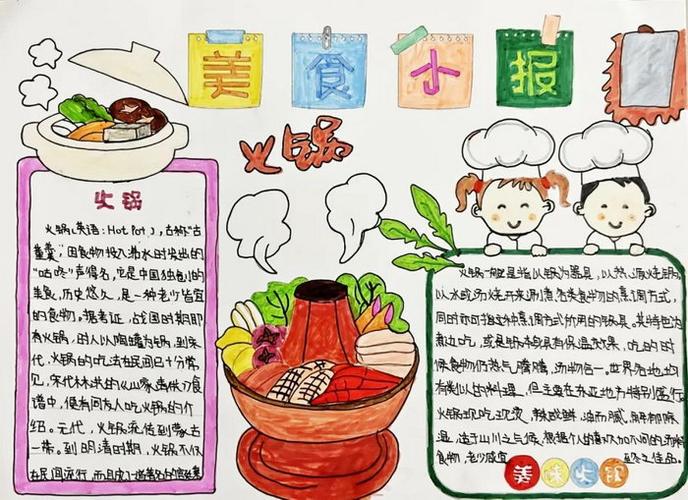 美食小报
火锅
火锅
火锅(英语:Hot Pot),古称"古
董羹",因食物投入沸水时发出的
"咕咚"声得名,它是中国独创的
美食,历史悠久,是一种老少皆宜
的食物。据考证,战国时期即
有火锅,时人以陶罐为锅,到宋
代,火锅的吃法在民间已十分常
见,宋代林洪的《山家清供》食
谱中,便有同友人吃火锅的介
绍。元代,火锅流传到蒙古一
带。到明清时期,火锅不仅
在民间流行,而且
火锅一般是指以锅为器具,以热源烧锅,
以水或汤烧开来涮煮各类食物的烹调方式,
同时亦可指这种烹调方式所用的锅具。其特色为
边煮边吃,或是锅本身具有保温效果,吃的时
候食物仍热气腾腾,汤物合一。世界各地均
有类似的料理,但主要在东亚地方特别盛行。
火锅现吃现烫,辣咸鲜,油而腻,解郁除
湿,适于山川之气候,
食物,老少咸宜 之佳品。
美味火锅